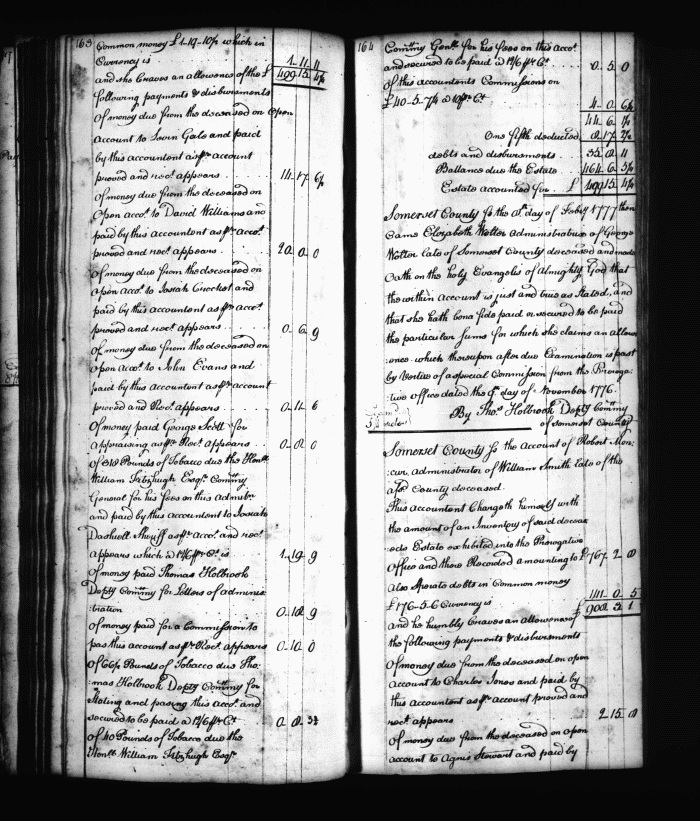 163
Common money £1-19-10½ which in
Currency is 1-11-11
and she Craves an allowance of the £ 499 15 4½
following payments & disbursements
of money due from the deceased on Open
account to Levin Gale and paid
by this accountant as ⅌ account
proved and rect. appears 14-17-6½
of money due from the deceased on
Open acct. to David Williams and
paid by this Accountant as ⅌ acct.
proved and rect. appears 0-0
of money due from the deceased on
open acct. to Josiah Crocket and
paid by this accountant as ⅌ acct.
proved and rect. appears 0-6-9
of money due from the deceased on
open acct. to John Evans and
paid by this accountant as ⅌ account
proved and Rect. appears 0-11-6
of money paid George Scott for
appraising as ⅌ Rect. appears
of Pounds of Tobacco due the Honble.
William Fitzhugh Esqr. Commy
General for his fees on this Admitn
and paid by this accountant to Josiah
Dashiell Sheriff as ⅌ Acct. and rect.
appears which @ 12/6 ⅌ Ct. is 1-19-9
of money paid Thomas Holbrook
Depty Commy for Letters of adminis
tration 9
of money paid for a Commission to
pass this account as ⅌ Rect. appears 0-10-0
of Pounds of Tobacco due Tho
mas Holbrook Depty Commy for
Stating and passing this acct. and
secured to be paid @ 12/6 ⅌ Ct
of 40 Pounds of Tobacco due the
Honble William Fitzhugh Esqr.
164
Commy Genl. for his fees on this Acct.
and secured to be paid @ 12/6 ⅌ Ct. 0 5 0
of this accountants Commissions on
£40-5-7½ @ 10 ⅌ Ct. 4-0-6½
44-6-1½
One fifth deducted
debts and disbursements 35 11
Ballance due the Estate 464-6-5½
Estate accounted for £ 499 15 4½
Somerset County ss the day of Feby 1777 then
Came Elizabeth Walter Administratrix of George
Walter late of Somerset County deceased and made
Oath on the holy Evangeles of Almighty God that
the within Account is just and true as Stated, and
that she hath bona fide paid or secured to be paid
the particular sums for which she claims an allow
:ance which thereupon after due Examination is past
by Vertue of a special Commission from the Preroga:
tive office dated the 9th. day of November 1776.
By Thos. Holbrook Depty Commy
of Somerset County
Somerset County ss the Account of Robert Mon:
:cur, administrator of William Smith late of the
afd. County deceased.
This Accountant Chargeth himself with
the amount of an Inventory of said deceas
eds Estate exhibited into the Prerogative
Office and there Recorded amounting to £767-2-0
Also Sperate debts in Common money
£176-5-6 Currency is 141-0-5
and he humbly Craves an allowance of £
the following payments & disbursements
of money due from the deceased on open
account to Charles Jones and paid by
this accountant as ⅌ account proved and
rect. appears 2 15 0
of money due from the deceased on open
account to Agnes Stewart and paid by